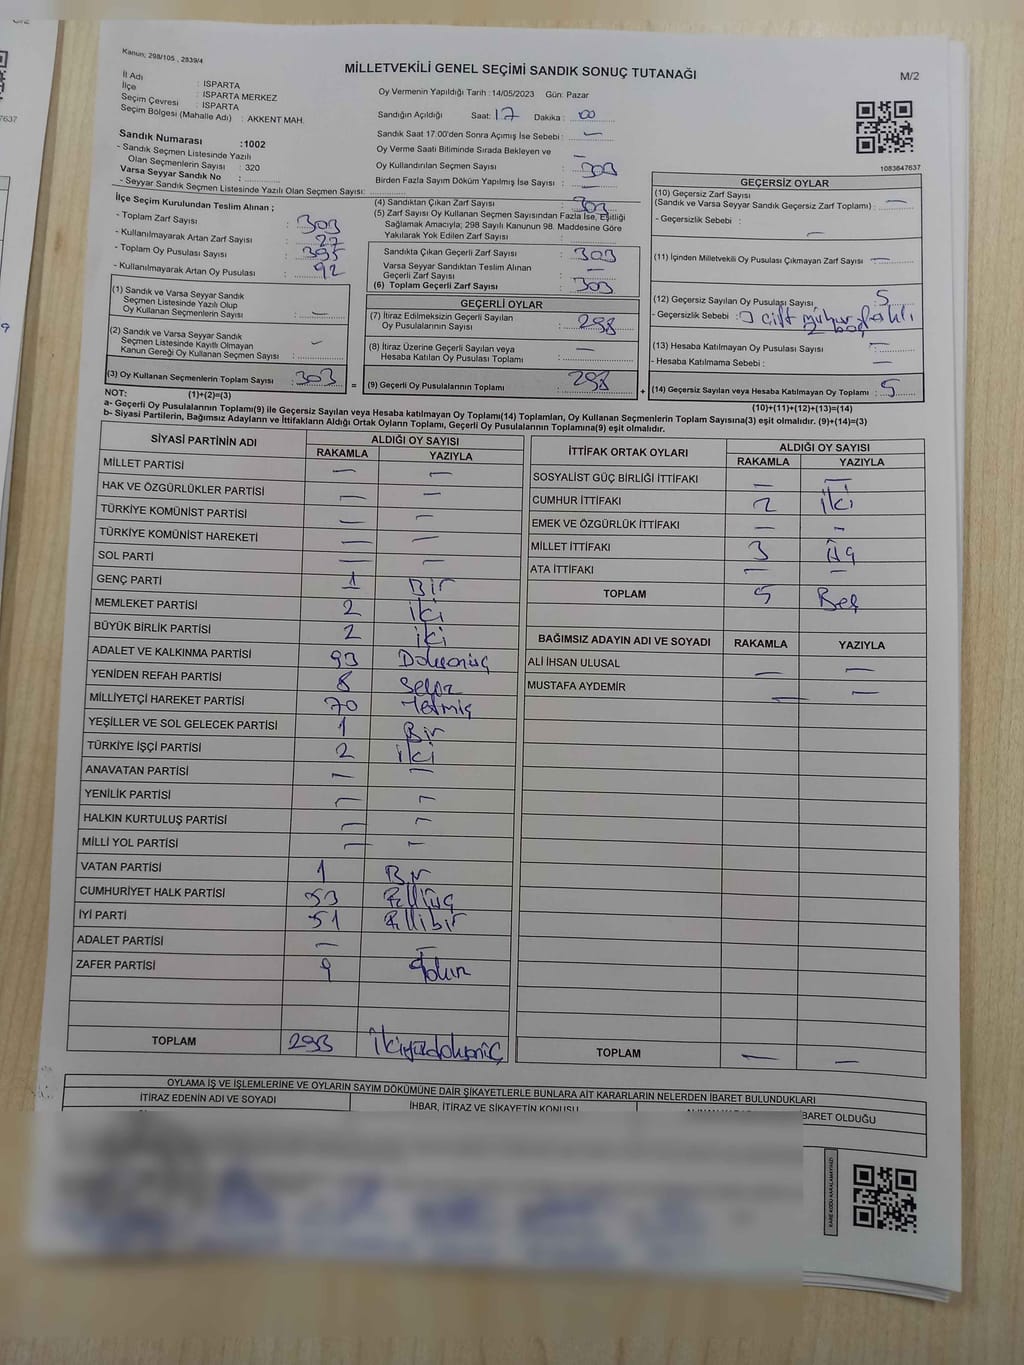 Kanun; 298/105 , 2839/4
MİLLETVEKİLİ GENEL SEÇİMİ SANDIK SONUÇ TUTANAĞI
M/2
İl Adı : ISPARTA
İlçe : ISPARTA MERKEZ
Seçim Çevresi : ISPARTA
Seçim Bölgesi (Mahalle Adı) : AKKENT MAH.
Sandık Numarası :1002
- Sandık Seçmen Listesinde Yazılı
Olan Seçmenlerin Sayısı : 320
Varsa Seyyar Sandık No :
- Seyyar Sandık Seçmen Listesinde Yazılı Olan Seçmen Sayısı:
Oy Vermenin Yapıldığı Tarih : 14/05/2023 Gün: Pazar
Sandığın Açıldığı Saat: 17 Dakika : 00
Sandık Saat 17:00'den Sonra Açımış İse Sebebi : —
Oy Verme Saati Bitiminde Sırada Bekleyen ve —
Oy Kullandırılan Seçmen Sayısı : 303
Birden Fazla Sayım Döküm Yapılmış İse Sayısı : —
1083847637
İlçe Seçim Kurulundan Teslim Alınan ;
- Toplam Zarf Sayısı : 303
- Kullanılmayarak Artan Zarf Sayısı : 27
- Toplam Oy Pusulası Sayısı : 395
- Kullanılmayarak Artan Oy Pusulası : 92
(1) Sandık ve Varsa Seyyar Sandık
Seçmen Listesinde Yazılı Olup
Oy Kullanan Seçmenlerin Sayısı : —
(2) Sandık ve Varsa Seyyar Sandık
Seçmen Listesinde Kayıtlı Olmayan
Kanun Gereği Oy Kullanan Seçmen Sayısı : —
(3) Oy Kullanan Seçmenlerin Toplam Sayısı : 303
(1)+(2)=(3)
(4) Sandıktan Çıkan Zarf Sayısı : 303
(5) Zarf Sayısı Oy Kullanan Seçmen Sayısından Fazla İse, Eşitliği
Sağlamak Amacıyla; 298 Sayılı Kanunun 98. Maddesine Göre
Yakılarak Yok Edilen Zarf Sayısı :
Sandıkta Çıkan Geçerli Zarf Sayısı : 303
Varsa Seyyar Sandıktan Teslim Alınan
Geçerli Zarf Sayısı : —
(6) Toplam Geçerli Zarf Sayısı : 303
GEÇERLİ OYLAR
(7) İtiraz Edilmeksizin Geçerli Sayılan
Oy Pusulalarının Sayısı : 298
(8) İtiraz Üzerine Geçerli Sayılan veya —
Hesaba Katılan Oy Pusulası Toplamı :
= (9) Geçerli Oy Pusulalarının Toplamı : 298
GEÇERSİZ OYLAR
(10) Geçersiz Zarf Sayısı
(Sandık ve Varsa Seyyar Sandık Geçersiz Zarf Toplamı) : —
- Geçersizlik Sebebi : —
(11) İçinden Milletvekili Oy Pusulası Çıkmayan Zarf Sayısı : —
(12) Geçersiz Sayılan Oy Pusulası Sayısı : 5
- Geçersizlik Sebebi : 3 çift mühür
(13) Hesaba Katılmayan Oy Pusulası Sayısı : —
- Hesaba Katılmama Sebebi : —
+ (14) Geçersiz Sayılan veya Hesaba Katılmayan Oy Toplamı : 5
(10)+(11)+(12)+(13)=(14)
NOT:
a- Geçerli Oy Pusulalarının Toplamı(9) ile Geçersiz Sayılan veya Hesaba katılmayan Oy Toplamı(14) Toplamları, Oy Kullanan Seçmenlerin Toplam Sayısına(3) eşit olmalıdır. (9)+(14)=(3)
b- Siyasi Partilerin, Bağımsız Adayların ve İttifakların Aldığı Ortak Oyların Toplamı, Geçerli Oy Pusulalarının Toplamına(9) eşit olmalıdır.
SİYASİ PARTİNİN ADI ALDIĞI OY SAYISI
RAKAMLA YAZIYLA
MİLLET PARTİSİ — —
HAK VE ÖZGÜRLÜKLER PARTİSİ — —
TÜRKİYE KOMÜNİST PARTİSİ — —
TÜRKİYE KOMÜNİST HAREKETİ — —
SOL PARTİ — —
GENÇ PARTİ 1 Bir
MEMLEKET PARTİSİ 2 iki
BÜYÜK BİRLİK PARTİSİ 2 iki
ADALET VE KALKINMA PARTİSİ 93 Doksanüç
YENİDEN REFAH PARTİSİ 8 Sekiz
MİLLİYETÇİ HAREKET PARTİSİ 70 Yetmiş
YEŞİLLER VE SOL GELECEK PARTİSİ 1 Bir
TÜRKİYE İŞÇİ PARTİSİ 2 iki
ANAVATAN PARTİSİ — —
YENİLİK PARTİSİ — —
HALKIN KURTULUŞ PARTİSİ — —
MİLLİ YOL PARTİSİ — —
VATAN PARTİSİ 1 Bir
CUMHURİYET HALK PARTİSİ 53 Elliüç
İYİ PARTİ 51 Ellibir
ADALET PARTİSİ — —
ZAFER PARTİSİ 9 Dokuz
TOPLAM 293 ikiyüzdoksanüç
İTTİFAK ORTAK OYLARI ALDIĞI OY SAYISI
RAKAMLA YAZIYLA
SOSYALİST GÜÇ BİRLİĞİ İTTİFAKI — —
CUMHUR İTTİFAKI 2 iki
EMEK VE ÖZGÜRLÜK İTTİFAKI — —
MİLLET İTTİFAKI 3 üç
ATA İTTİFAKI — —
TOPLAM 5 Beş
BAĞIMSIZ ADAYIN ADI VE SOYADI RAKAMLA YAZIYLA
ALİ İHSAN ULUSAL — —
MUSTAFA AYDEMİR — —
TOPLAM — —
OYLAMA İŞ VE İŞLEMLERİNE VE OYLARIN SAYIM DÖKÜMÜNE DAİR ŞİKAYETLERLE BUNLARA AİT KARARLARIN NELERDEN İBARET BULUNDUKLARI
İTİRAZ EDENİN ADI VE SOYADI İHBAR, İTİRAZ VE ŞİKAYETİN KONUSU BARET OLDUĞU
KARE KODU KARALAMAYINIZ!